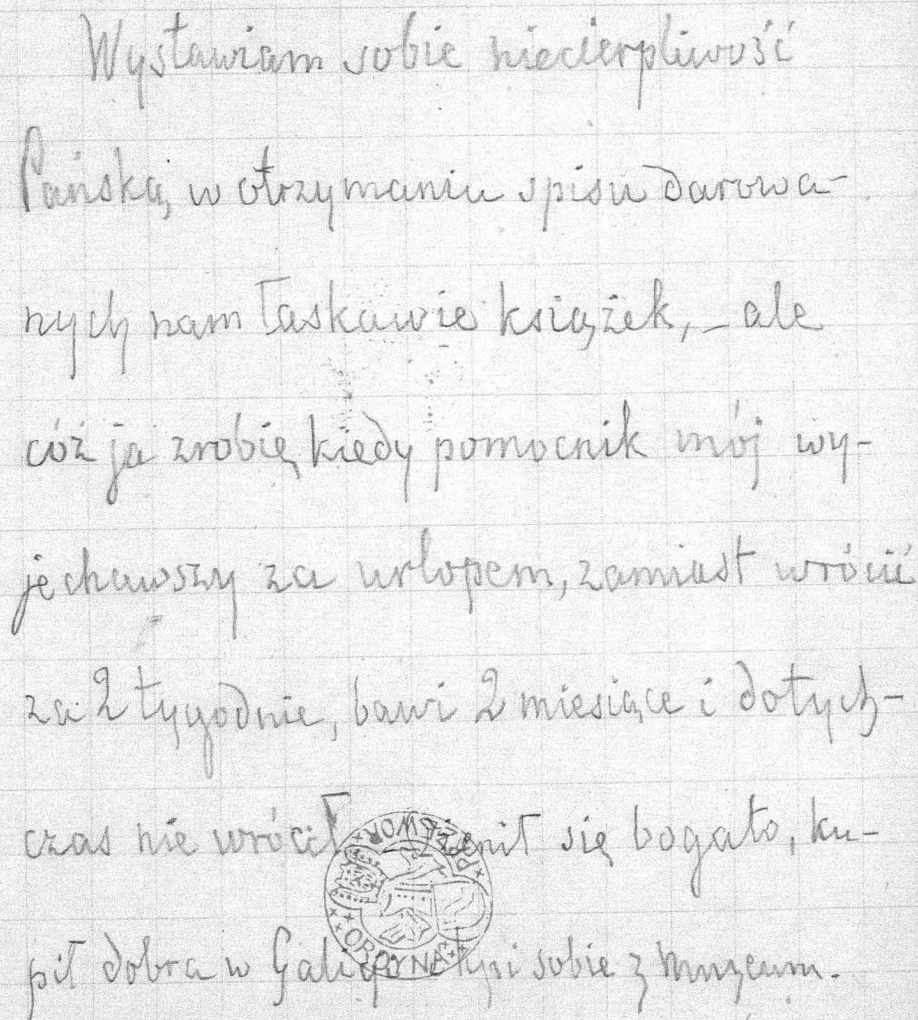 Wystawiam sobie niecierpliwość
Pańską, w otrzymaniu spisu darowa-
nych nam łaskawie książek, – ale
cóż ja zrobię, kiedy pomocnik mój wy-
jechawszy za urlopem, zamiast wrócić
za 2 tygodnie, bawi 2 miesiące i dotych-
czas nie wrócił się bogato, ku-
pił dobra w sobie z muzeum.
ORDYNA PRZEWOR